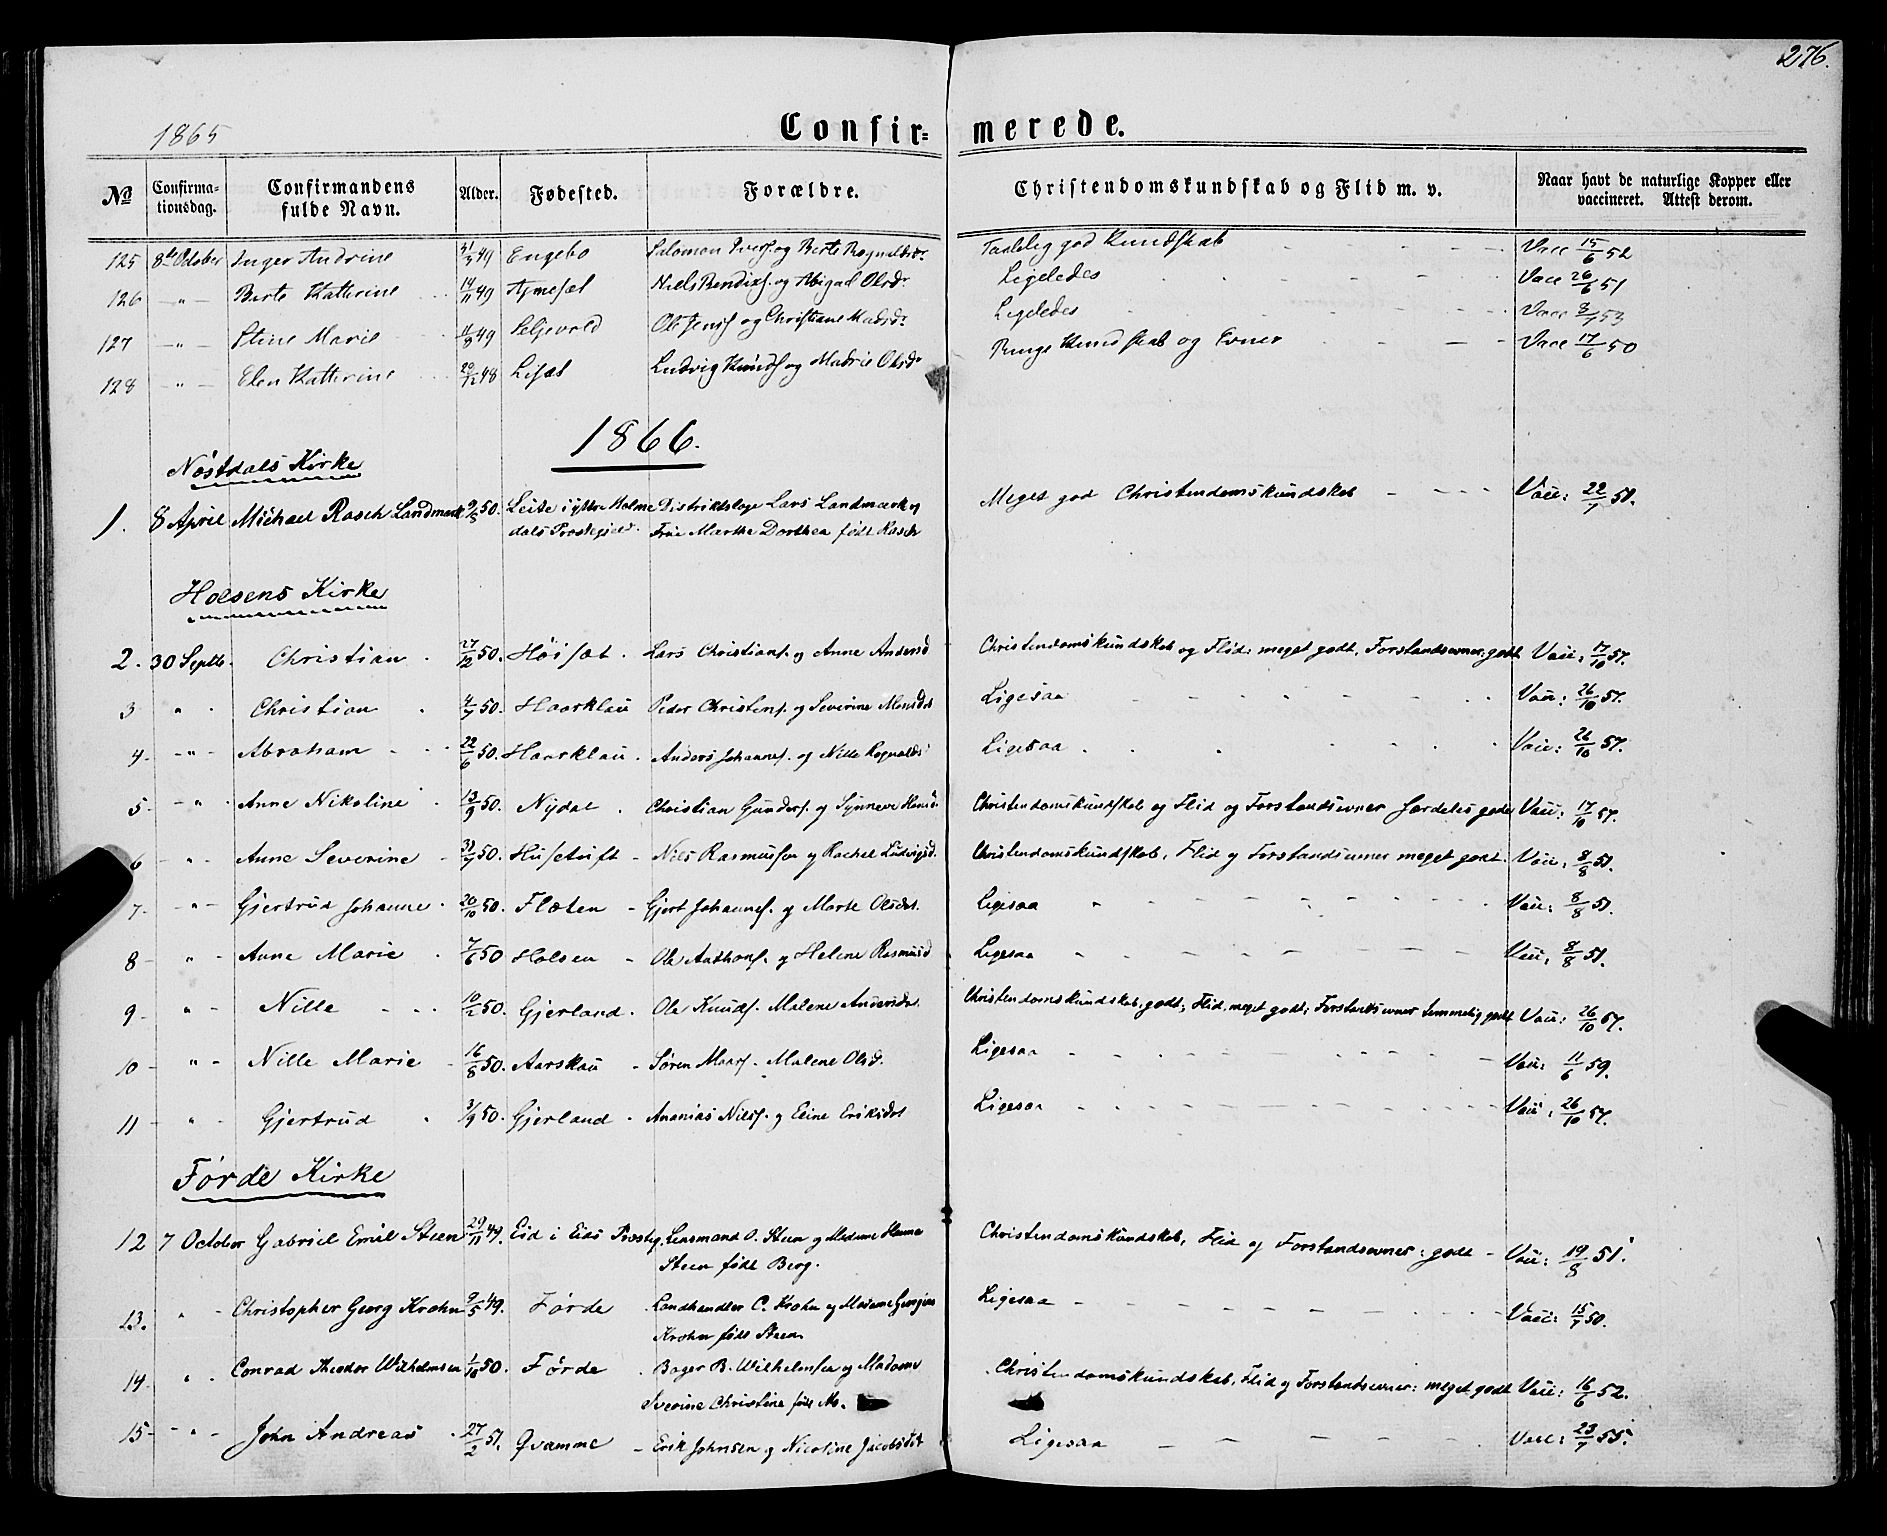 276.
1865
Confir= merede.
No Confirmationsdag. Confirmandens fulde Navn. Alder. Fødested. Forældre. Christendomskundskab og Flid m. v. Naar havt de naturlige Kopper eller vaccineret. Attest derom.
125 8de October Inger Andrine 49 Engebø Salomon Iversf. og Berte Rognaldsdr Taalelig god Kundskab Vacc 15/6 52
126 -"- Berte Katterine 14/11 49 Niels Bendixf. og Abigael Olsdr Ligeledes Vacc 26/6 51
127 -"- Stine Marie 11/9 49 Seljevold Ole Jensf og Christiane Madsdr Ligeledes Vacc 8/7 53
128 -"- Elen Katterine 20/12 48 Ludvig Knudsf og Madrie Olsdr Ringe Kundskab og Evner Vacc 17/6 50
1866.
Nøstdals Kirke
1. 8 April Michael Rasch Landmark 9/8 50. Leite i yttre Holme Distriktslæge Lars Landmark og Meget god Christendomskundskab Vacc: 22/7 51.
dals Præstegjeld. Frue Marthe Dorthea født Rasch
Holsens Kirke
2. 30 Septb. Christian 27/12 50. Høisæt Lars Christiansf. og Anne Andersd Christendomskundskab og Flid: meget godt, Forstandsevner: godt Vacc: 17/10 57.
3 " Christian 4/7 50. Haarklau Peder Christensf. og Severine Monsdtr Ligesaa Vacc: 26/10 57.
4 -"- Abraham 22/6 50. Haarklau Anders Johannesf. og Nille Rognaldsd Ligesaa Vacc: 26/10 57.
5 -"- Anne Nikoline 13/9 50. Nydal Christian Gundersf. og Synneve Hansd. Christendomskundskab og Flid og Forstandsevner særdeles gode Vacc: 17/10 57.
6 -"- Anne Severine 50. Husetuft Nils Rasmussen og Rachel Ludvigsd. Christendomskundskab, Flid og Forstandsevner meget godt. Vacc: 8/8 51.
7 -"- Gjertrud Johanne 20/10 50. Flæten Gjert Johannesf. og Marte Olsdtr. Ligesaa Vacc: 8/8 51.
8 " Anne Marie 7/6 50 Holsen Ole Anthonsf. og Helene Rasmusd Ligesaa Vacc: 8/8 51.
9 " Nille 10/2 50. Gjerland Ole Knudsf. Malene Andersdtr. Christendomskundskab godt; Flid, meget godt; Forstandsevner temmelig godt Vacc: 26/10 57.
10 " Nille Marie 16/8 50. Aarskau Søren Madsf. Malene Olsd. Ligesaa Vacc: 11/6 59.
11 " Gjertrud 3/9 50. Gjerland Ananias Nilsf. og Eline Eriksdtr Ligesaa Vacc: 26/10 57.
Førde Kirke
12 7 October Gabriel Emil Steen 29/11 49. Eid i Eids Præstg. Lensmand O. Steen og Madame Hanna Christendomskundskab, Flid og Forstandsevner: godt Vacc: 19/8 51.
Steen født Berg.
13. " Christopher Georg Krohn 9/5 49. Førde Landhandler C. Krohn og Madame Ligesaa Vacc: 15/7 50.
Krohn født Steen
14 " Conrad Theodor Wilhelmsen 1/10 50. Førde Bager B. Wilhelmsen og Madame Christendomskundskab, Flid og Forstandsevner: meget godt Vacc: 16/6 52.
Severine Christine født
15 -"- John Andreas 27/2 51. Qvamme Erik Johnsen og Nicoline Jacobsdtr Ligesaa Vacc: 23/7 55.